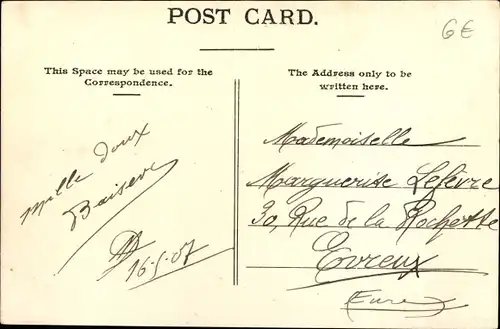 POST CARD.
6€
This Space may be used for the
Correspondence.
The Address only to be
written here.
Mille doux
Baisers
16-5-07
Mademoiselle
Marguerite Lefèvre
30, Rue de la Rochette
Evreux
(Eure)